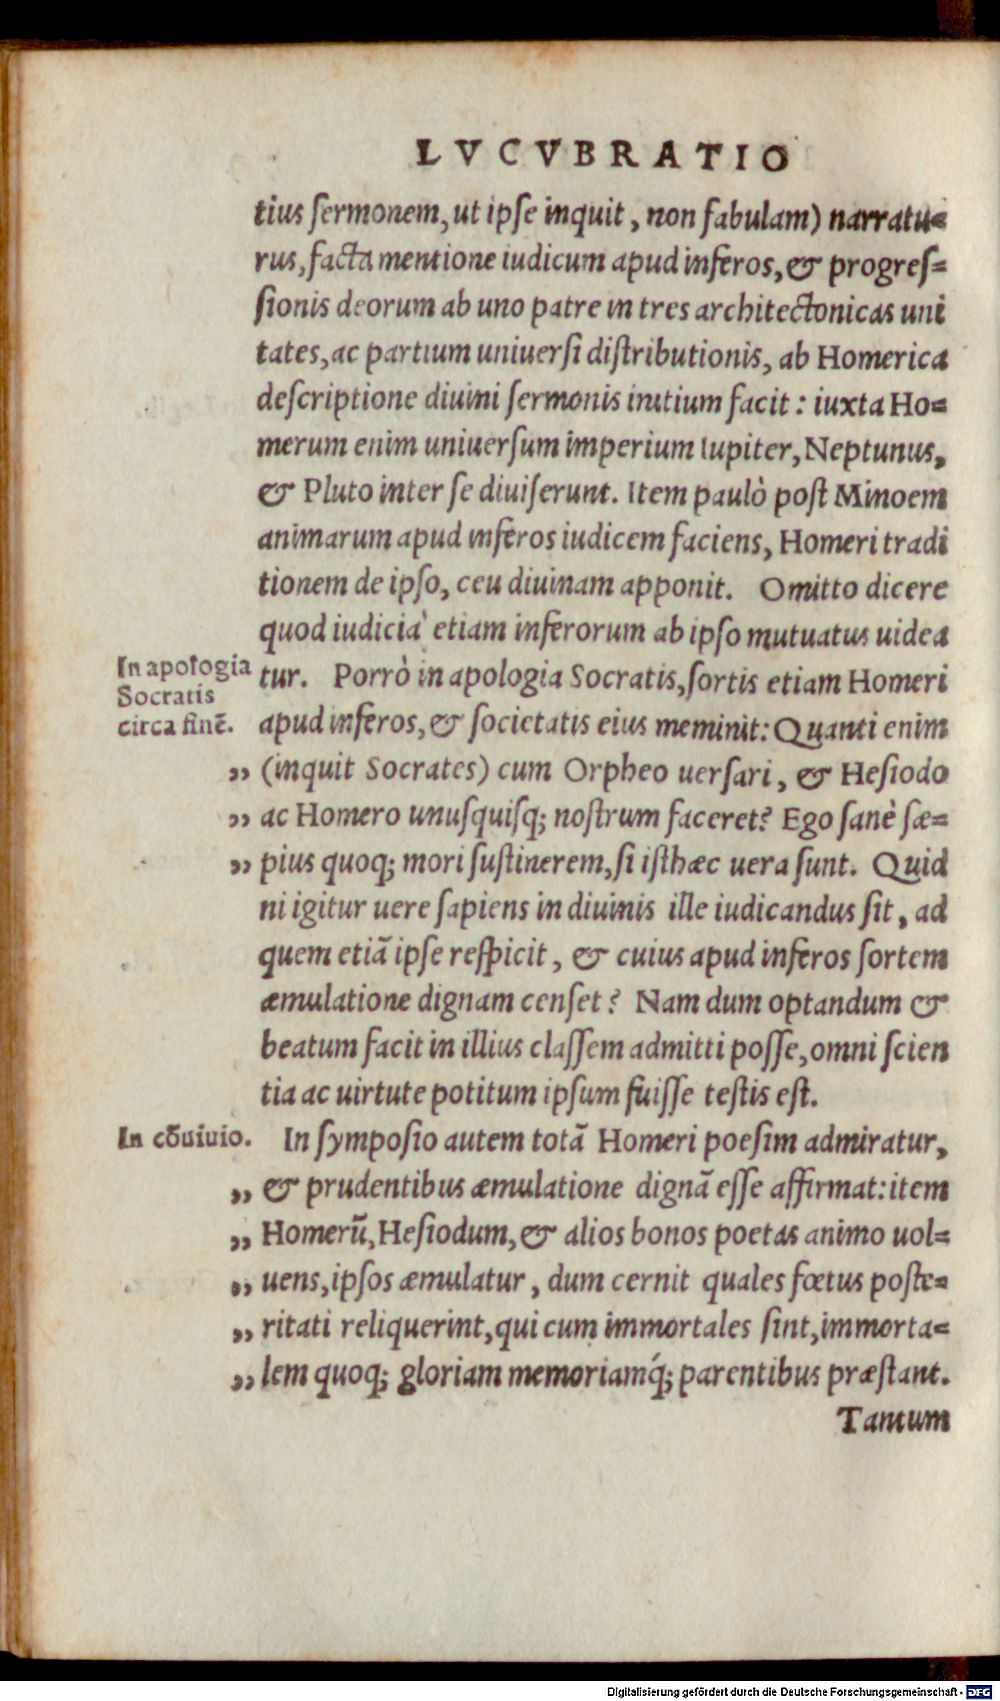 LVCVBRATIO
tius ſermonem, ut ipſe inquit, non fabulam) narratu=
rus, facta mentione iudicum apud inferos, & progreſ=
ſionis deorum ab uno patre in tres architectonicas uni
tates, ac partium uniuerſi diſtributionis, ab Homerica
deſcriptione diuini ſermonis initium facit: iuxta Ho=
merum enim uniuerſum imperium Iupiter, Neptunus,
& Pluto inter ſe diuiſerunt. Item paulò poſt Minoem
animarum apud inferos iudicem faciens, Homeri tradi
tionem de ipſo, ceu diuinam apponit. Omitto dicere
quod iudicia etiam inferorum ab ipſo mutuatus uidea
In apologia
Socratis
circa finē.
tur. Porrò in apologia Socratis, ſortis etiam Homeri
apud inferos, & ſocietatis eius meminit: Quanti enim
„ (inquit Socrates) cum Orpheo uerſari, & Heſiodo
„ ac Homero unuſquiſq; noſtrum faceret? Ego ſanè ſæ=
„ pius quoq; mori ſuſtinerem, ſi iſthæc uera ſunt. Quid
ni igitur uere ſapiens in diuinis ille iudicandus ſit, ad
quem etiā ipſe reſpicit, & cuius apud inferos ſortem
æmulatione dignam cenſet? Nam dum optandum &
beatum facit in illius claſſem admitti poſſe, omni ſcien
tia ac uirtute potitum ipſum fuiſſe teſtis eſt.
In cōuiuio.
In ſympoſio autem totā Homeri poeſim admiratur,
„ & prudentibus æmulatione dignā eſſe affirmat: item
„ Homerū, Heſiodum, & alios bonos poetas animo uol=
„ uens, ipſos æmulatur, dum cernit quales fœtus poſte=
„ ritati reliquerint, qui cum immortales ſint, immorta=
„ lem quoq; gloriam memoriamq́; parentibus præſtant.
Tantum
Digitalisierung gefördert durch die Deutsche Forschungsgemeinschaft - DFG